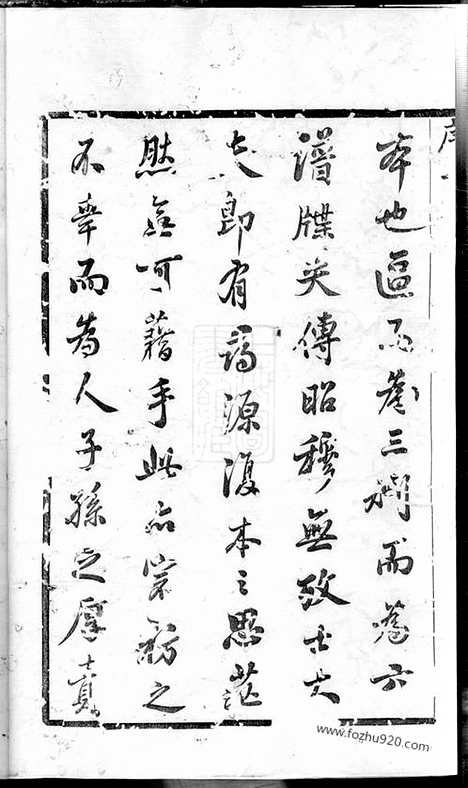 序
本也而為三而為六
譜牒失傳昭穆無攷士大
夫即有窮源復本之思茫
然無可藉手此亦宗祊之
不幸而為人子孫之厚
www.fozhu920.com